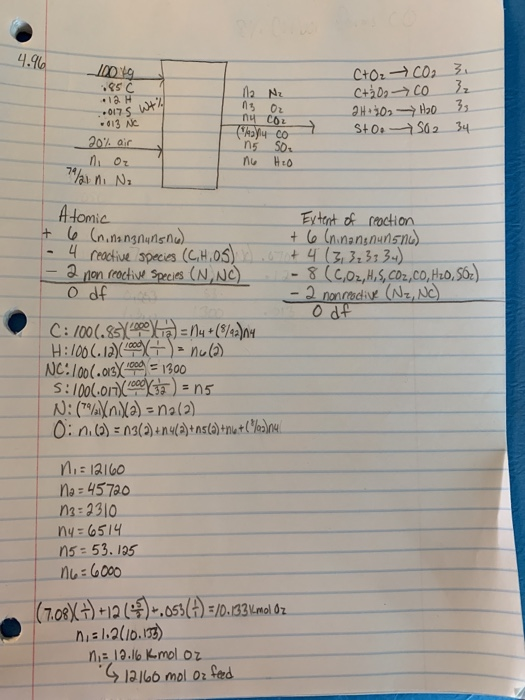 4.96
100 kg
.85 C
.12 H
.017 S wt%
.013 NC
20% air
n1 O2
79/21 n1 N2
n2 N2
n3 O2
n4 CO2
(8/92)n4 CO
n5 SO2
n6 H2O
C+O2 → CO2 ξ1
C+½O2 → CO ξ2
2H+½O2 → H2O ξ3
S+O2 → SO2 ξ4
Atomic
+ 6 (n1n2n3n4n5n6)
- 4 reactive species (C,H,O,S)
- 2 non reactive species (N,NC)
0 df
Extent of reaction
+ 6 (n1n2n3n4n5n6)
+ 4 (ξ1 ξ2 ξ3 ξ4)
- 8 (C,O2,H,S,CO2,CO,H2O,SO2)
- 2 nonreactive (N2,NC)
0 df
C: 100(.85)(1000/1)(1/12) = n4+(8/92)n4
H: 100(.12)(1000/1)(1/1) = n6(2)
NC: 100(.013)(1000/1) = 1300
S: 100(.017)(1000/1)(1/32) = n5
N: (79/21)(n1)(2) = n2(2)
O: n1(2) = n3(2)+n4(2)+n5(2)+n6+(8/92)n4
n1 = 12160
n2 = 45720
n3 = 2310
n4 = 6514
n5 = 53.125
n6 = 6000
(7.08)(1/1)+12(.5/2)+.053(1/1) = 10.133 kmol O2
n1 = 1.2(10.133)
n1 = 12.16 kmol O2
↳ 12160 mol O2 feed